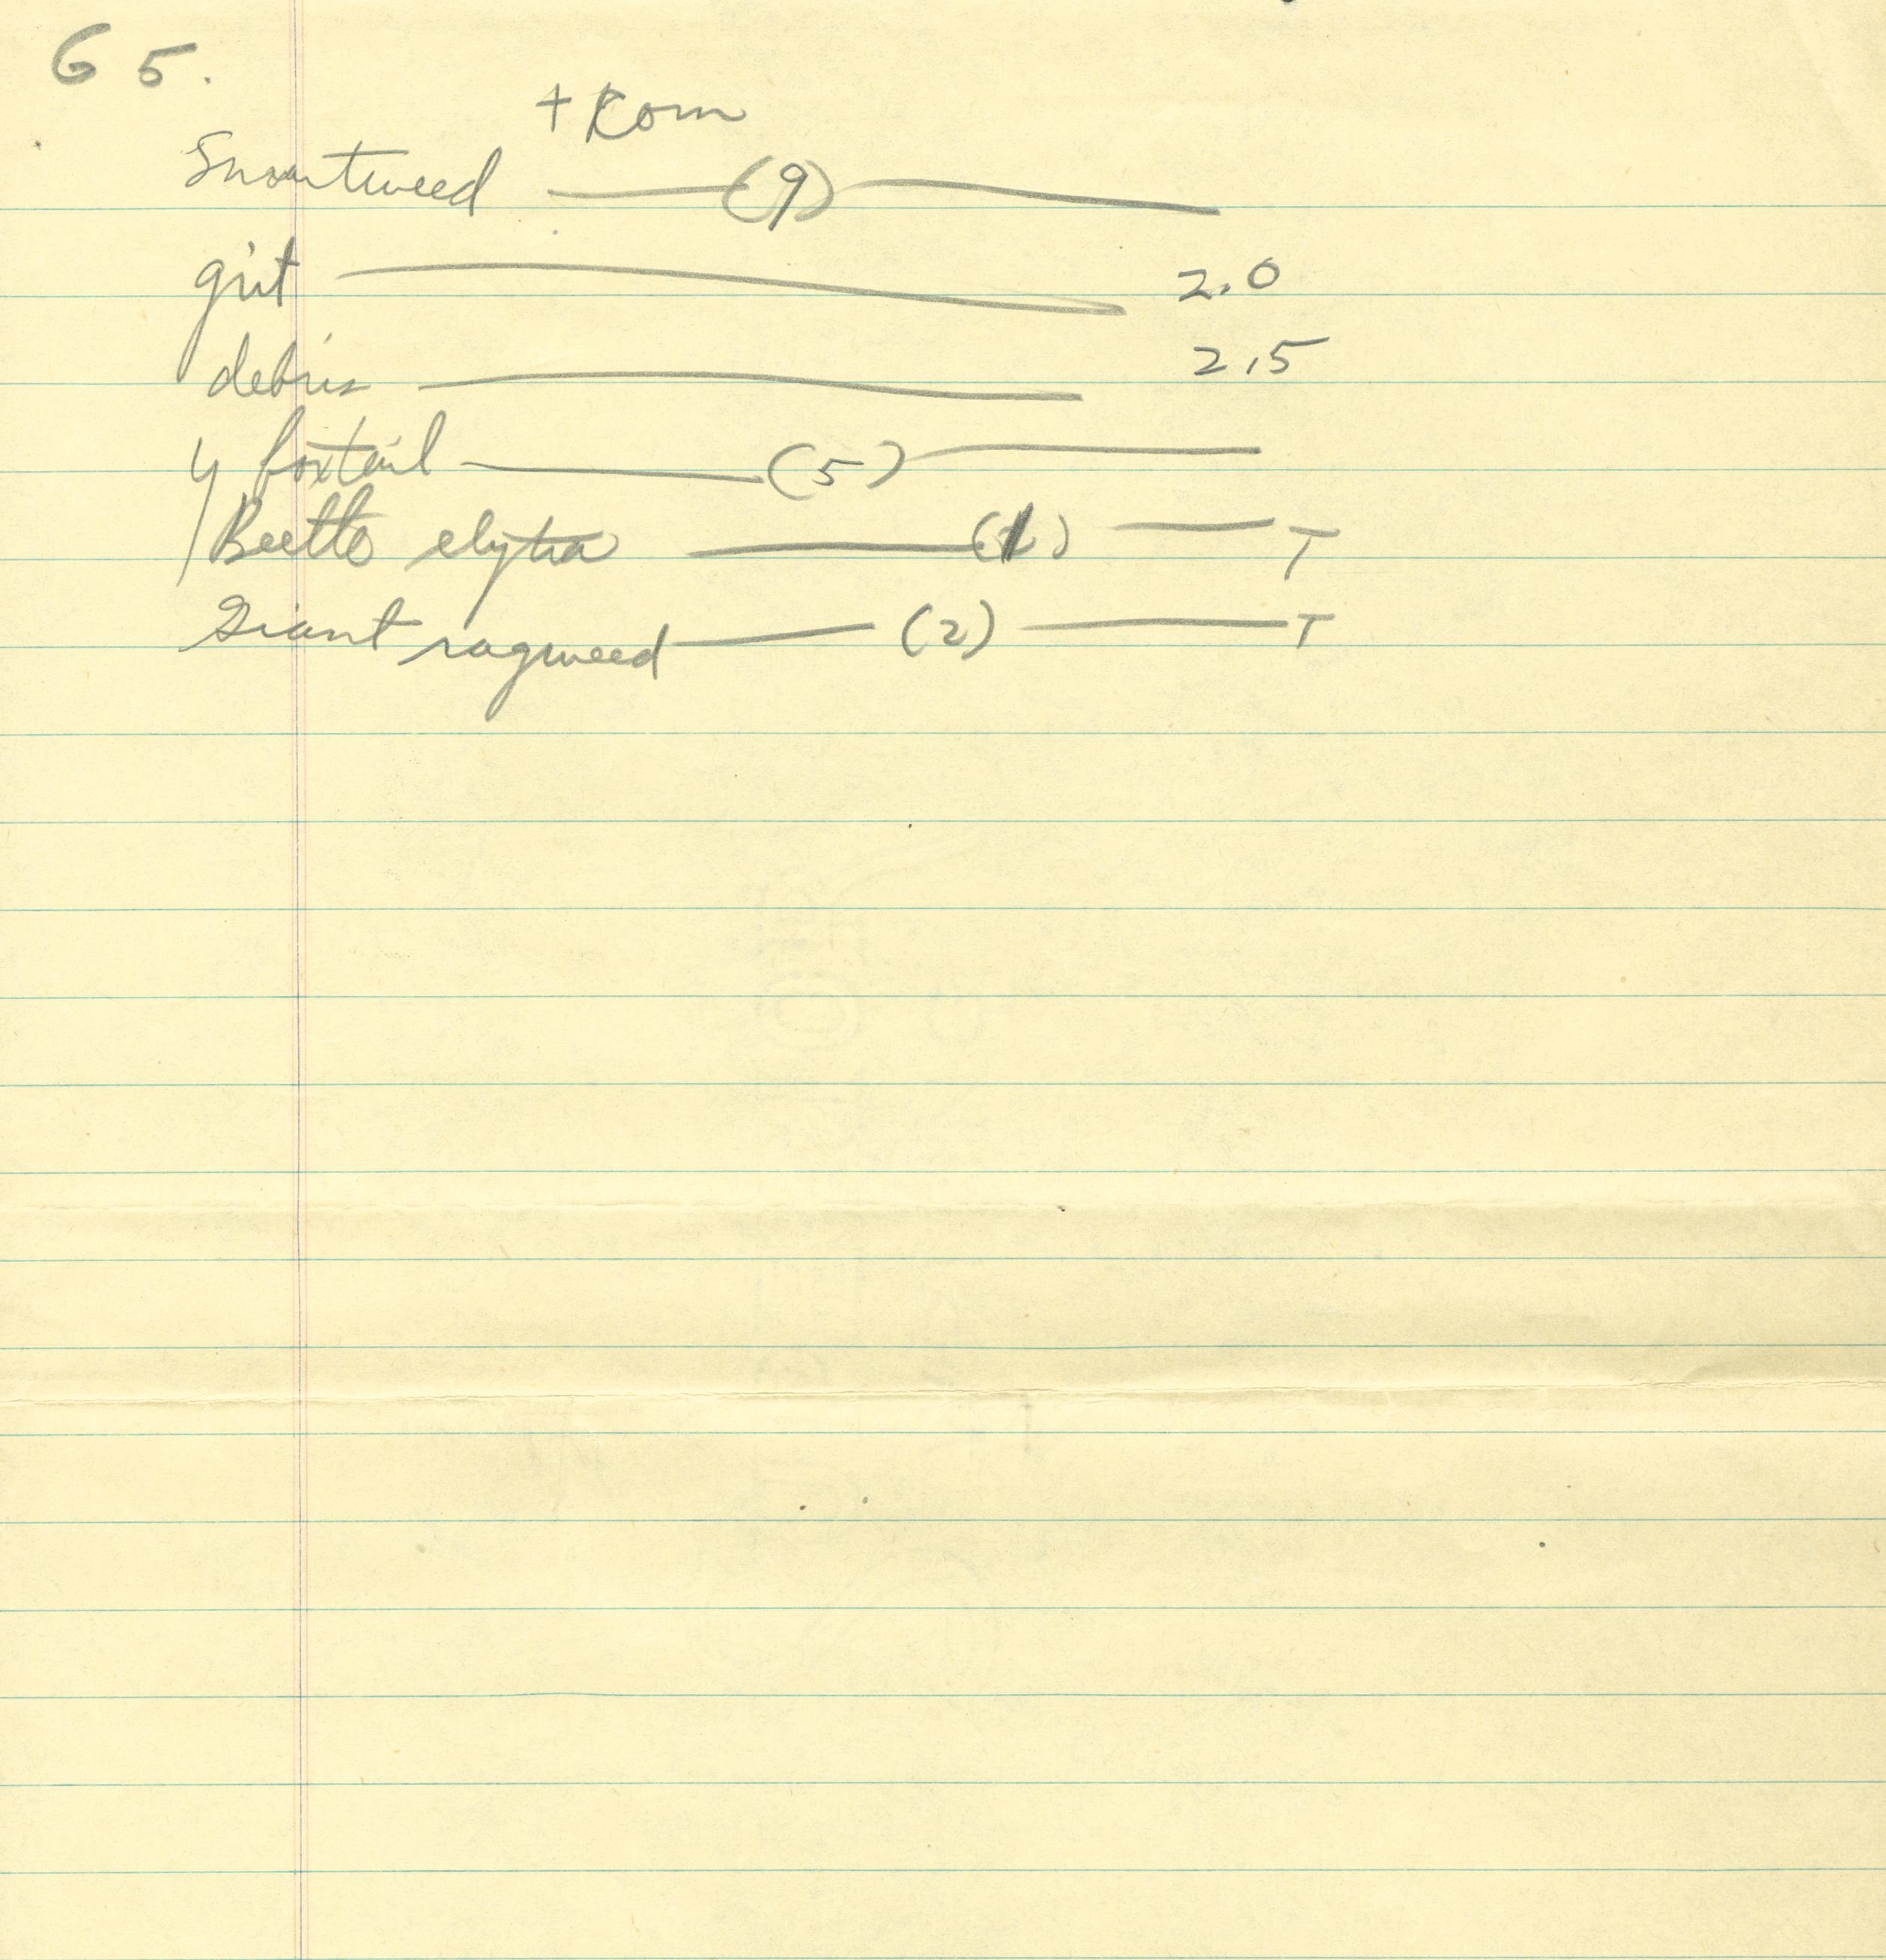 G 5.
+ Korn
Smartweed — (9) —
grit — 2.0
debris — 2.5
y foxtail — (5) —
Beetle elytra — (1) — T
Giant ragweed — (2) — T